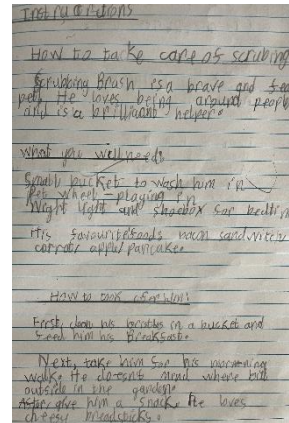 Instructions
How to take care of scrubing
Scrubbing Brush is a brave and
pet. He loves being around
and is a brilliant helper.
What you will need:
Small bucket to wash him in
Pet wheel playing in
Night light and shoebox for
His favourite foods sandwitch
carrot apple pancake.
How to look him:
First, his in a bucket and
feed him his Breakfast.
Next, take him for his
walk. He doesn't mind where
outside in the garden.
After, give him a snack. He loves
cheesy breadsticks.